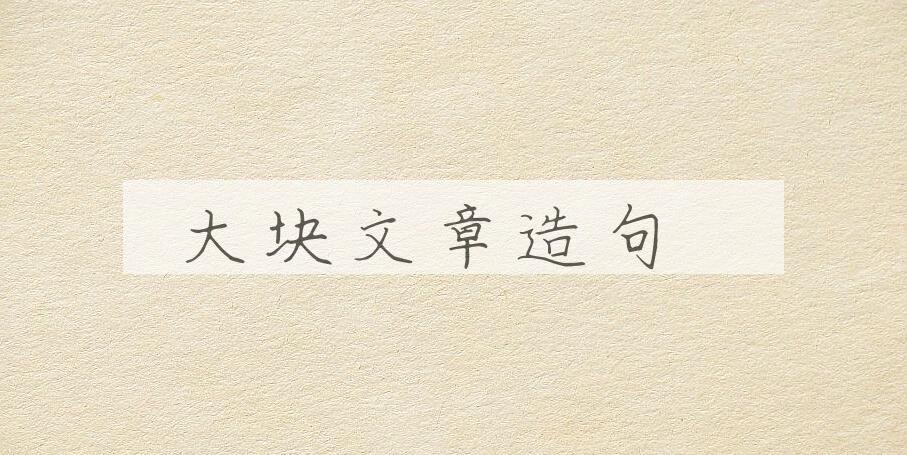 大块文章造句